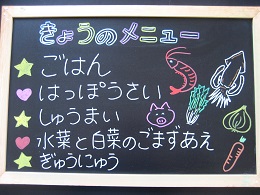 きょうのメニュー
ごはん
はっぽうさい
しゅうまい
水菜と白菜のごまずあえ
ぎゅうにゅう